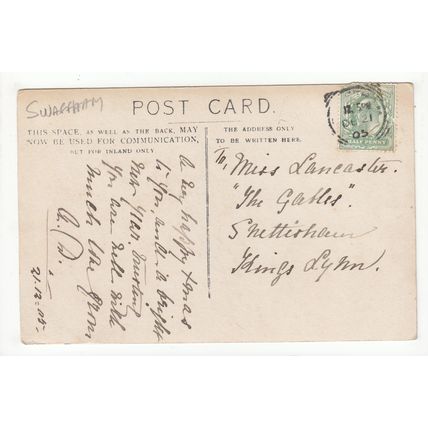 SWAFFHAM
POST CARD.
THIS SPACE, AS WELL AS THE BACK, MAY
NOW BE USED FOR COMMUNICATION,
BUT FOR INLAND ONLY.
THE ADDRESS ONLY
TO BE WRITTEN HERE.
HALF PENNY
21
05
To, Miss Lancaster.
"The Gables".
Snettisham
Kings Lynn.
A very happy Xmas
to you, and a bright
New Year. Trusting
you are well. With
much love from
A. D.
21.12.05.